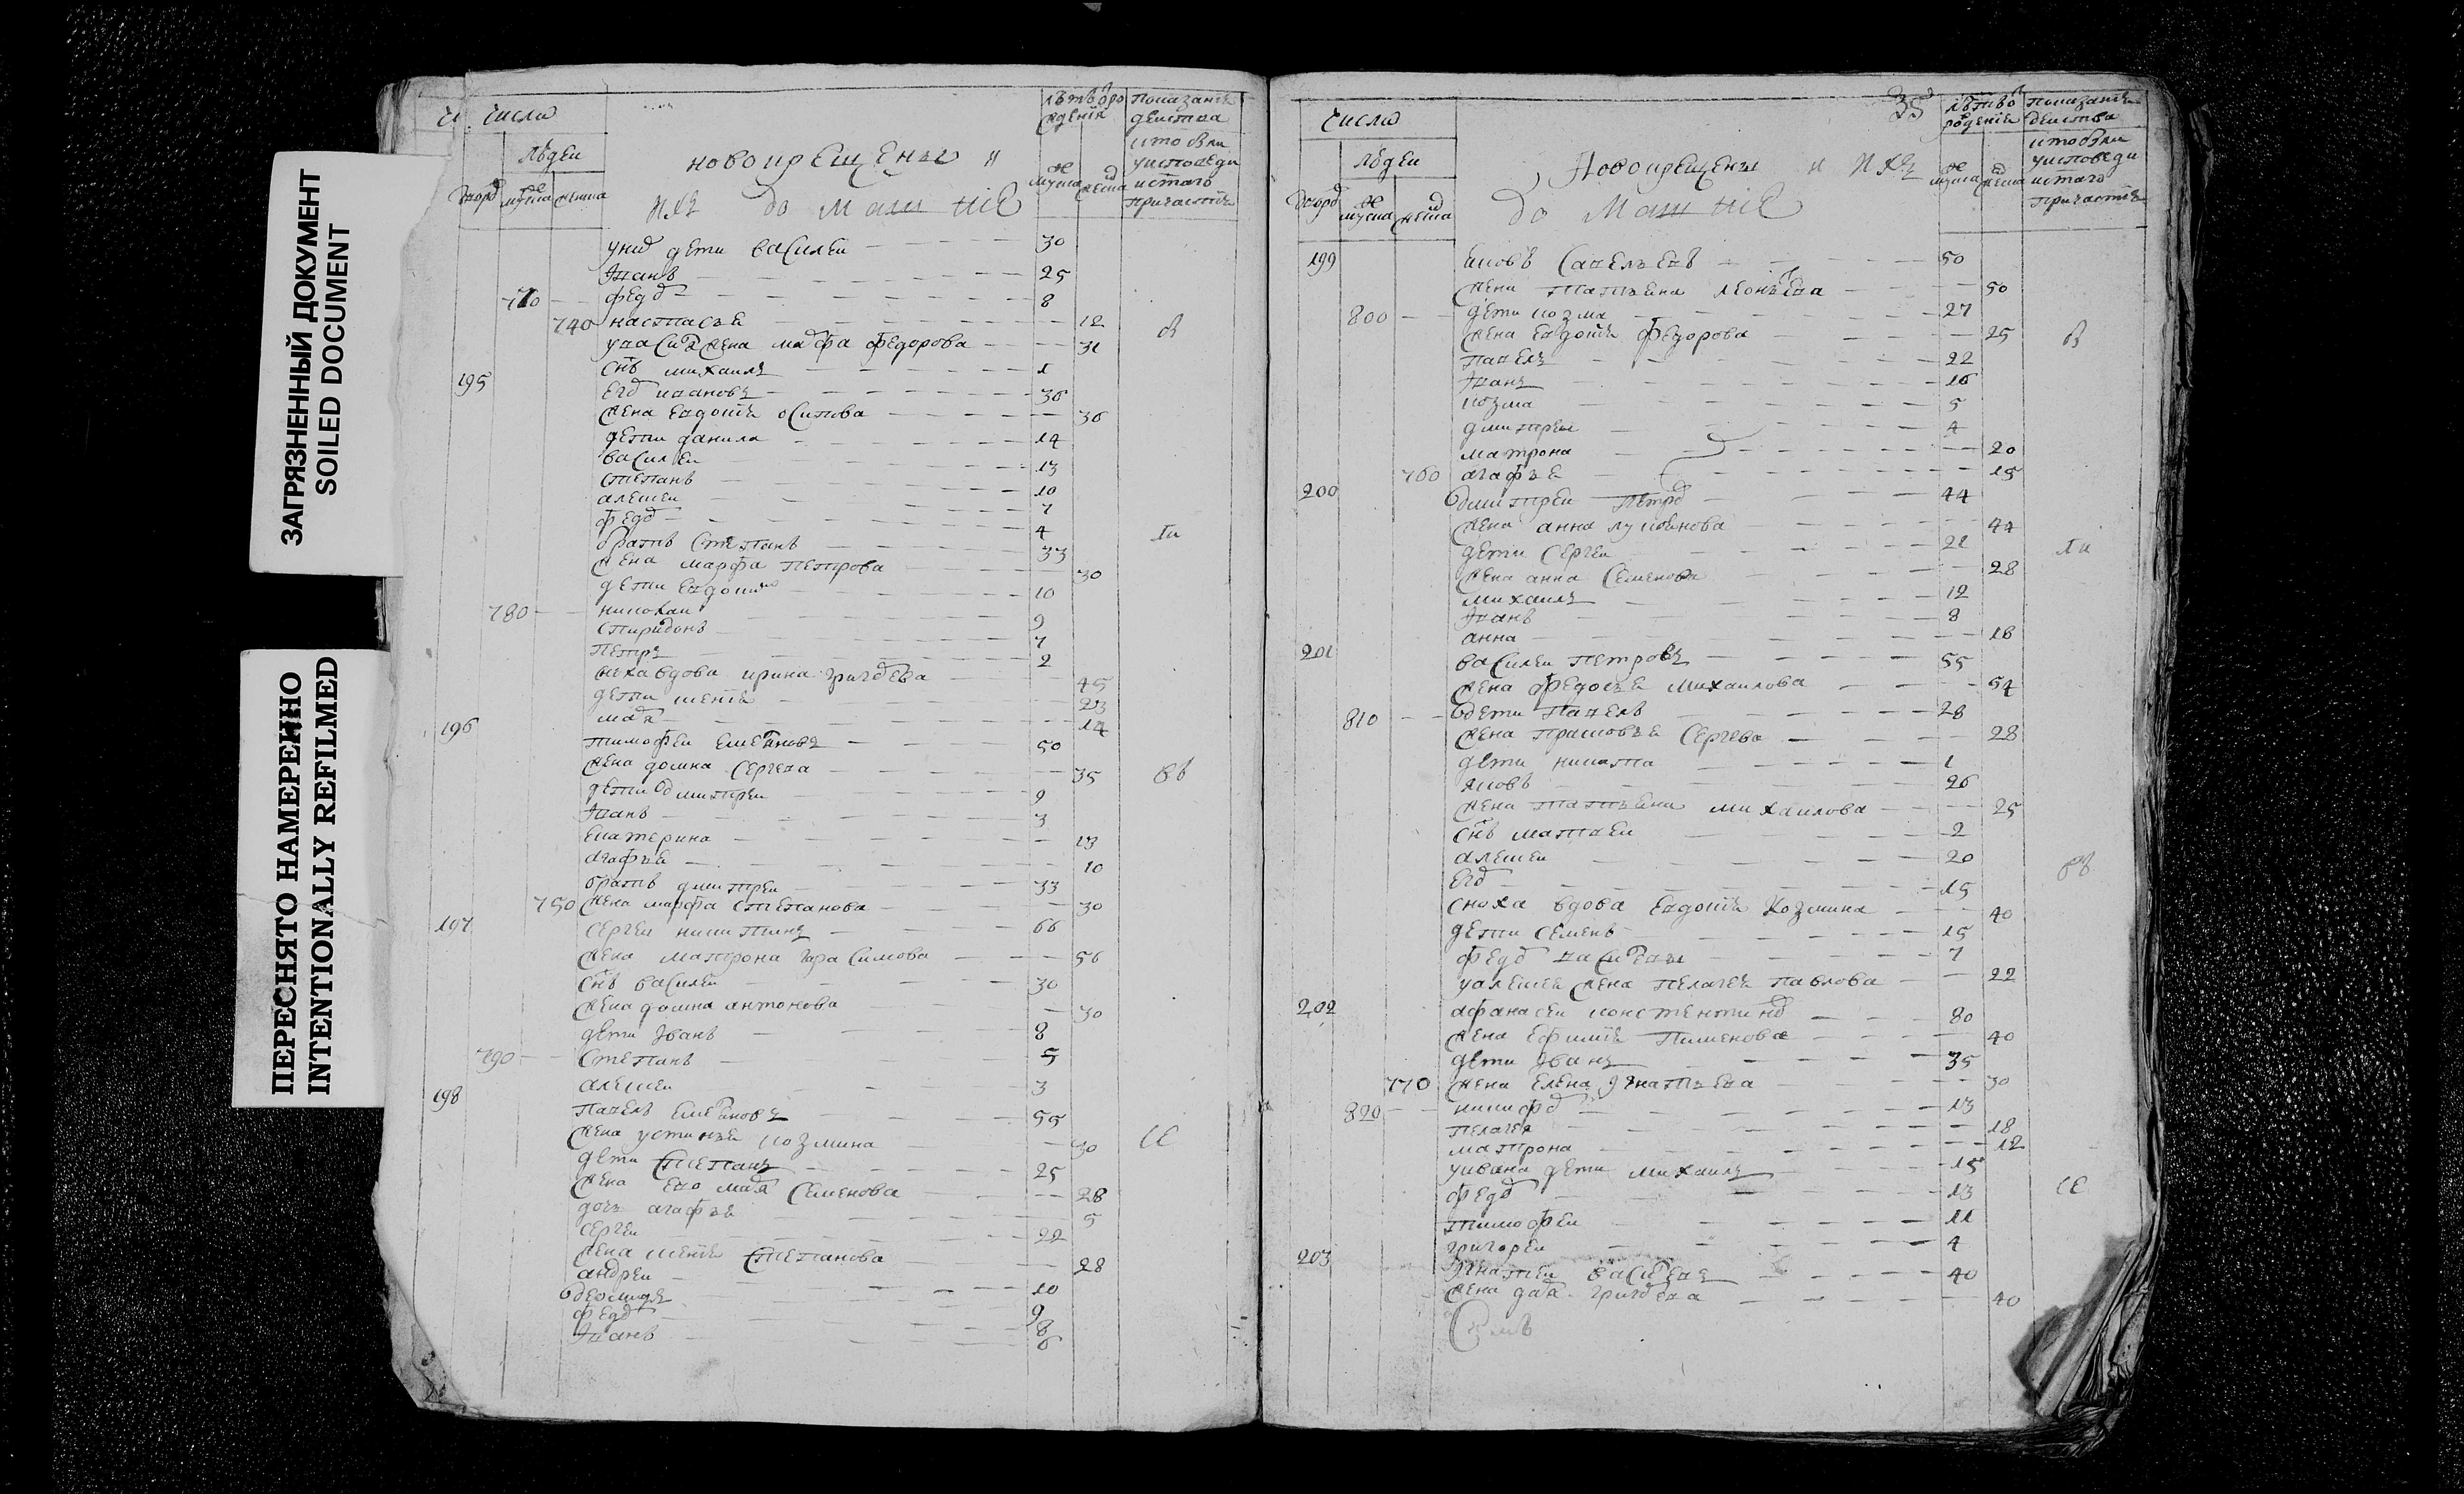 ЗАГРЯЗНЕННЫЙ ДОКУМЕНТ
SOILED DOCUMENT
ПЕРЕСНЯТО НАМЕРЕННО
INTENTIONALLY REFILMED
числа
людеи
мужска женска
новокрещены и
их домашние
показание
действа
кто были
у исповеди
и стаго
причастия
у них дети василеи 30
иванъ 25
770 федор 8
740 настасья 12
у васил жена марфа федорова 31
снъ михаилъ 1
195
егор ивановъ 36
жена евдокия осипова 36
дети данила 14
василеи 13
степанъ 10
алексеи 7
федор 4
братъ степанъ 33
жена марфа петрова 30
дети евдоким 10
780 николаи 9
спиридонъ 7
петръ 2
сноха вдова ирина григорева 45
дети 23
марья 14
196
тимофеи емеляновъ 50
жена домна сергева 35
дети дмитреи 9
иванъ 3
екатерина 13
агафья 10
братъ дмитреи 33
750 жена марфа степанова 30
197 сергеи никитинъ 66
жена матрона гарасимова 56
снъ василеи 30
жена домна антонова 30
дети иванъ 8
790 степанъ 5
алексеи 3
198
павелъ емеляновъ 55
жена устинья козмина 30
дети степанъ 25
жена ево марья семенова 28
дочь агафья 5
сергеи 22
жена степанова 28
андреи 10
9
федор 8
иванъ 6
35
числа
людеи
мужска женска
Новокрещены и их
домашние
показание
действа
кто были
у исповеди
и стаго
причастия
199 яковъ савельевъ 50
жена татьяна 50
800 дети козма 27
жена евдокия федорова 25
павелъ 22
иванъ 16
козма 5
дмитреи 4
матрона 20
760 агафья 15
200 дмитреи петров 44
жена анна лукоянова 44
дети сергеи 21
жена анна семенова 28
михаилъ 12
иванъ 8
анна 16
201 василеи петровъ 55
жена федосья михаилова 54
810 дети павелъ 28
жена прасковья сергева 28
дети никита 1
яковъ 26
жена татьяна михаилова 25
снъ матвеи 2
алексеи 20
егор 15
сноха вдова евдокия козмина 40
дети семенъ 15
федор васильевы 7
у алексея жена пелагея павлова 22
202 афанасеи константинов 80
жена ефимия пименова 40
дети иванъ 35
770 жена елена игнатьева 30
820 никифор 13
пелагея 18
матрона 12
у ивана дети михаилъ 15
федор 13
тимофеи 11
григореи 4
203 игнатеи васильевъ 40
жена дарья григорева 40